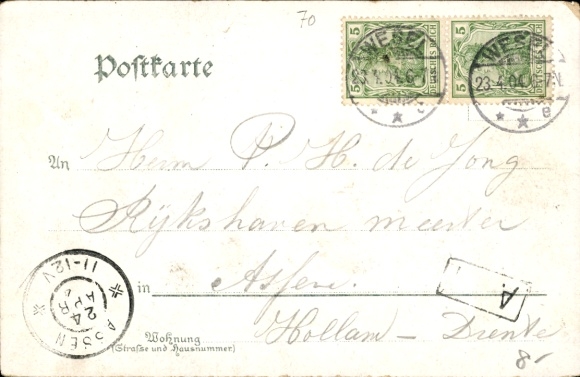 70
5 DEUTSCHES REICH 5
5 DEUTSCHES REICH 5
WESEL
23.4.04.6-7N
* * e
WESEL
23.4.04.6-7N
* * e
Postkarte
An Herrn P. H. de Jong
Rijkshaven meester
in Assen.
Holland - Drente
Wohnung
(Straße und Hausnummer)
ASSEN
24
APR
11-12V
A.
8-